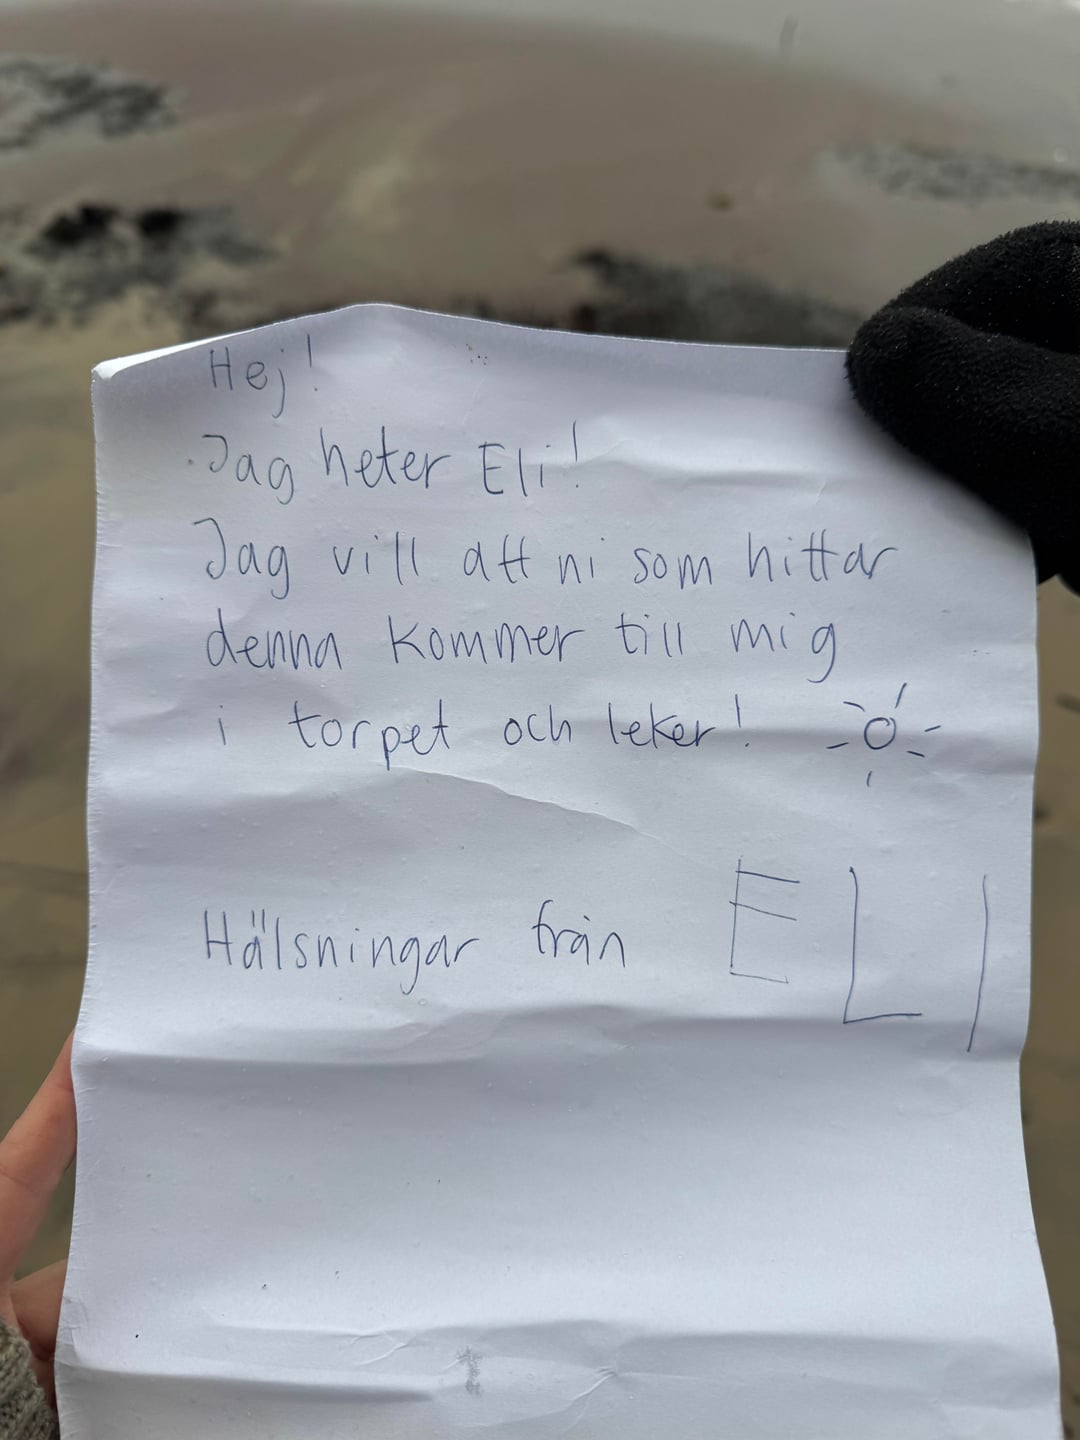 Hej!
Jag heter Eli!
Jag vill att ni som hittar
denna kommer till mig
i torpet och leker!
Hälsningar från ELI